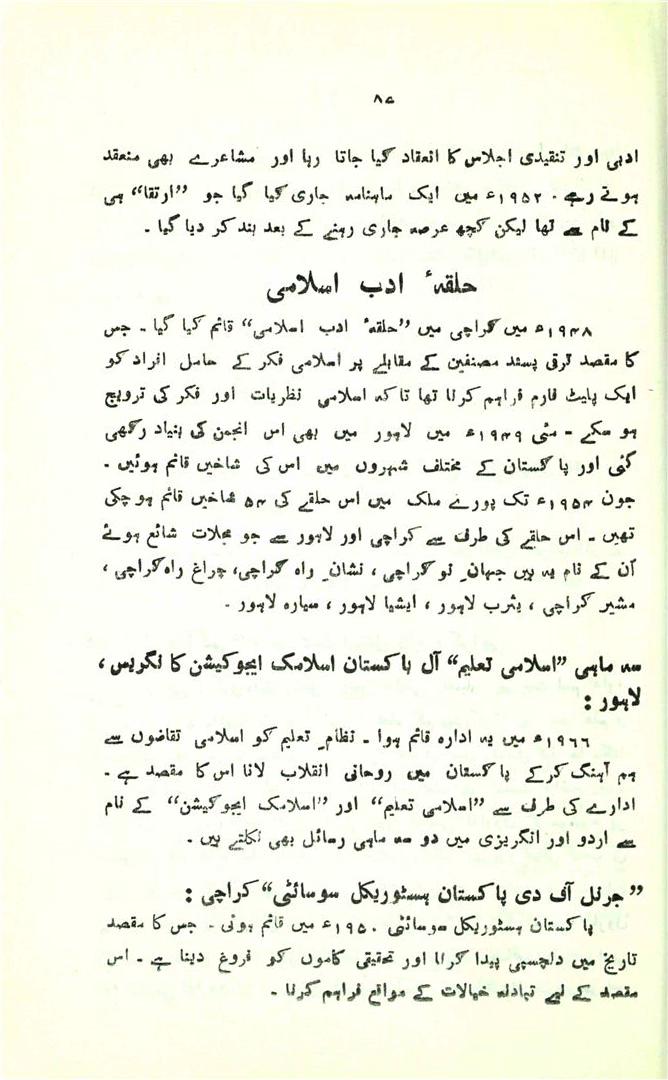 ۸۷
ادبی اور تنقیدی اجلاس کا انعقاد کیا جاتا رہا اور مشاعرے بھی منعقد
ہوتے رہے۔ ۱۹۵۲ء میں ایک ماہنامہ جاری کیا گیا جو ”ارتقا“ ہی
کے نام سے تھا لیکن کچھ عرصہ جاری رہنے کے بعد بند کر دیا گیا۔
حلقۂ ادب اسلامی
۱۹۴۸ء میں کراچی میں ”حلقۂ ادب اسلامی“ قائم کیا گیا۔ جس
کا مقصد ترقی پسند مصنفین کے مقابلے پر اسلامی فکر کے حامل افراد کو
ایک پلیٹ فارم فراہم کرنا تھا تاکہ اسلامی نظریات اور فکر کی ترویج
ہو سکے۔ مئی ۱۹۴۹ء میں لاہور میں بھی اس انجمن کی بنیاد رکھی
گئی اور پاکستان کے مختلف شہروں میں اس کی شاخیں قائم ہوئیں۔
جون ۱۹۵۴ء تک پورے ملک میں اس حلقے کی ۵۴ شاخیں قائم ہو چکی
تھیں۔ اس حلقے کی طرف سے کراچی اور لاہور سے جو مجلات شائع ہوئے
اُن کے نام یہ ہیں جہانِ نو کراچی، نشانِ راہ کراچی، چراغ راہ کراچی،
مشیر کراچی، یثرب لاہور، ایشیا لاہور، سیارہ لاہور۔
سہ ماہی ”اسلامی تعلیم“ آل پاکستان اسلامک ایجوکیشن کانگریس،
لاہور:
۱۹۶۶ء میں یہ ادارہ قائم ہوا۔ نظامِ تعلیم کو اسلامی تقاضوں سے
ہم آہنگ کرکے پاکستان میں روحانی انقلاب لانا اس کا مقصد ہے۔
ادارے کی طرف سے ”اسلامی تعلیم“ اور ”اسلامک ایجوکیشن“ کے نام
سے اردو اور انگریزی میں دو سہ ماہی رسائل بھی نکلتے ہیں۔
”جرنل آف دی پاکستان ہسٹوریکل سوسائٹی“ کراچی:
پاکستان ہسٹوریکل سوسائٹی ۱۹۵۰ء میں قائم ہوئی۔ جس کا مقصد
تاریخ میں دلچسپی پیدا کرنا اور تحقیقی کاموں کو فروغ دینا ہے۔ اس
مقصد کے لیے تبادلہ خیالات کے مواقع فراہم کرنا۔